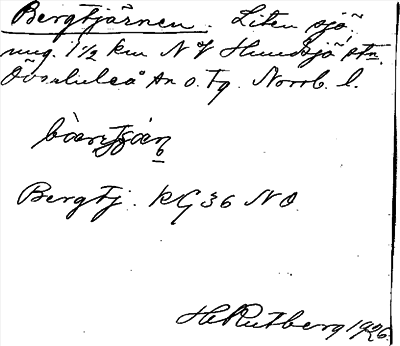 Bergtjärnen. Liten sjö
ung. 1 1/2 km N V Hundsjö stn.
Överluleå sn o. Tg. Norrb. l.
Bergtj. RG36 NO.
H Rutberg 1926.